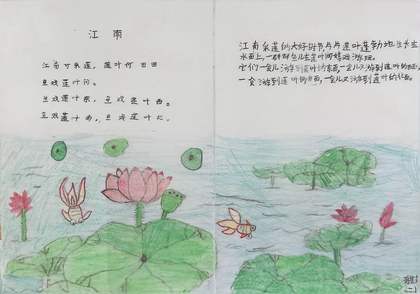 江南
江南可采莲，莲叶何田田
鱼戏莲叶间。
鱼戏莲叶东，鱼戏莲叶西。
鱼戏莲叶南，鱼戏莲叶北。
江南采莲的大好时节
水面上，一群群鱼儿在莲叶间嬉戏游玩。
它们一会儿游到莲叶的东面，一会儿又游到莲叶的西面，
一会游到莲叶的南面，一会儿又游到莲叶的北面。